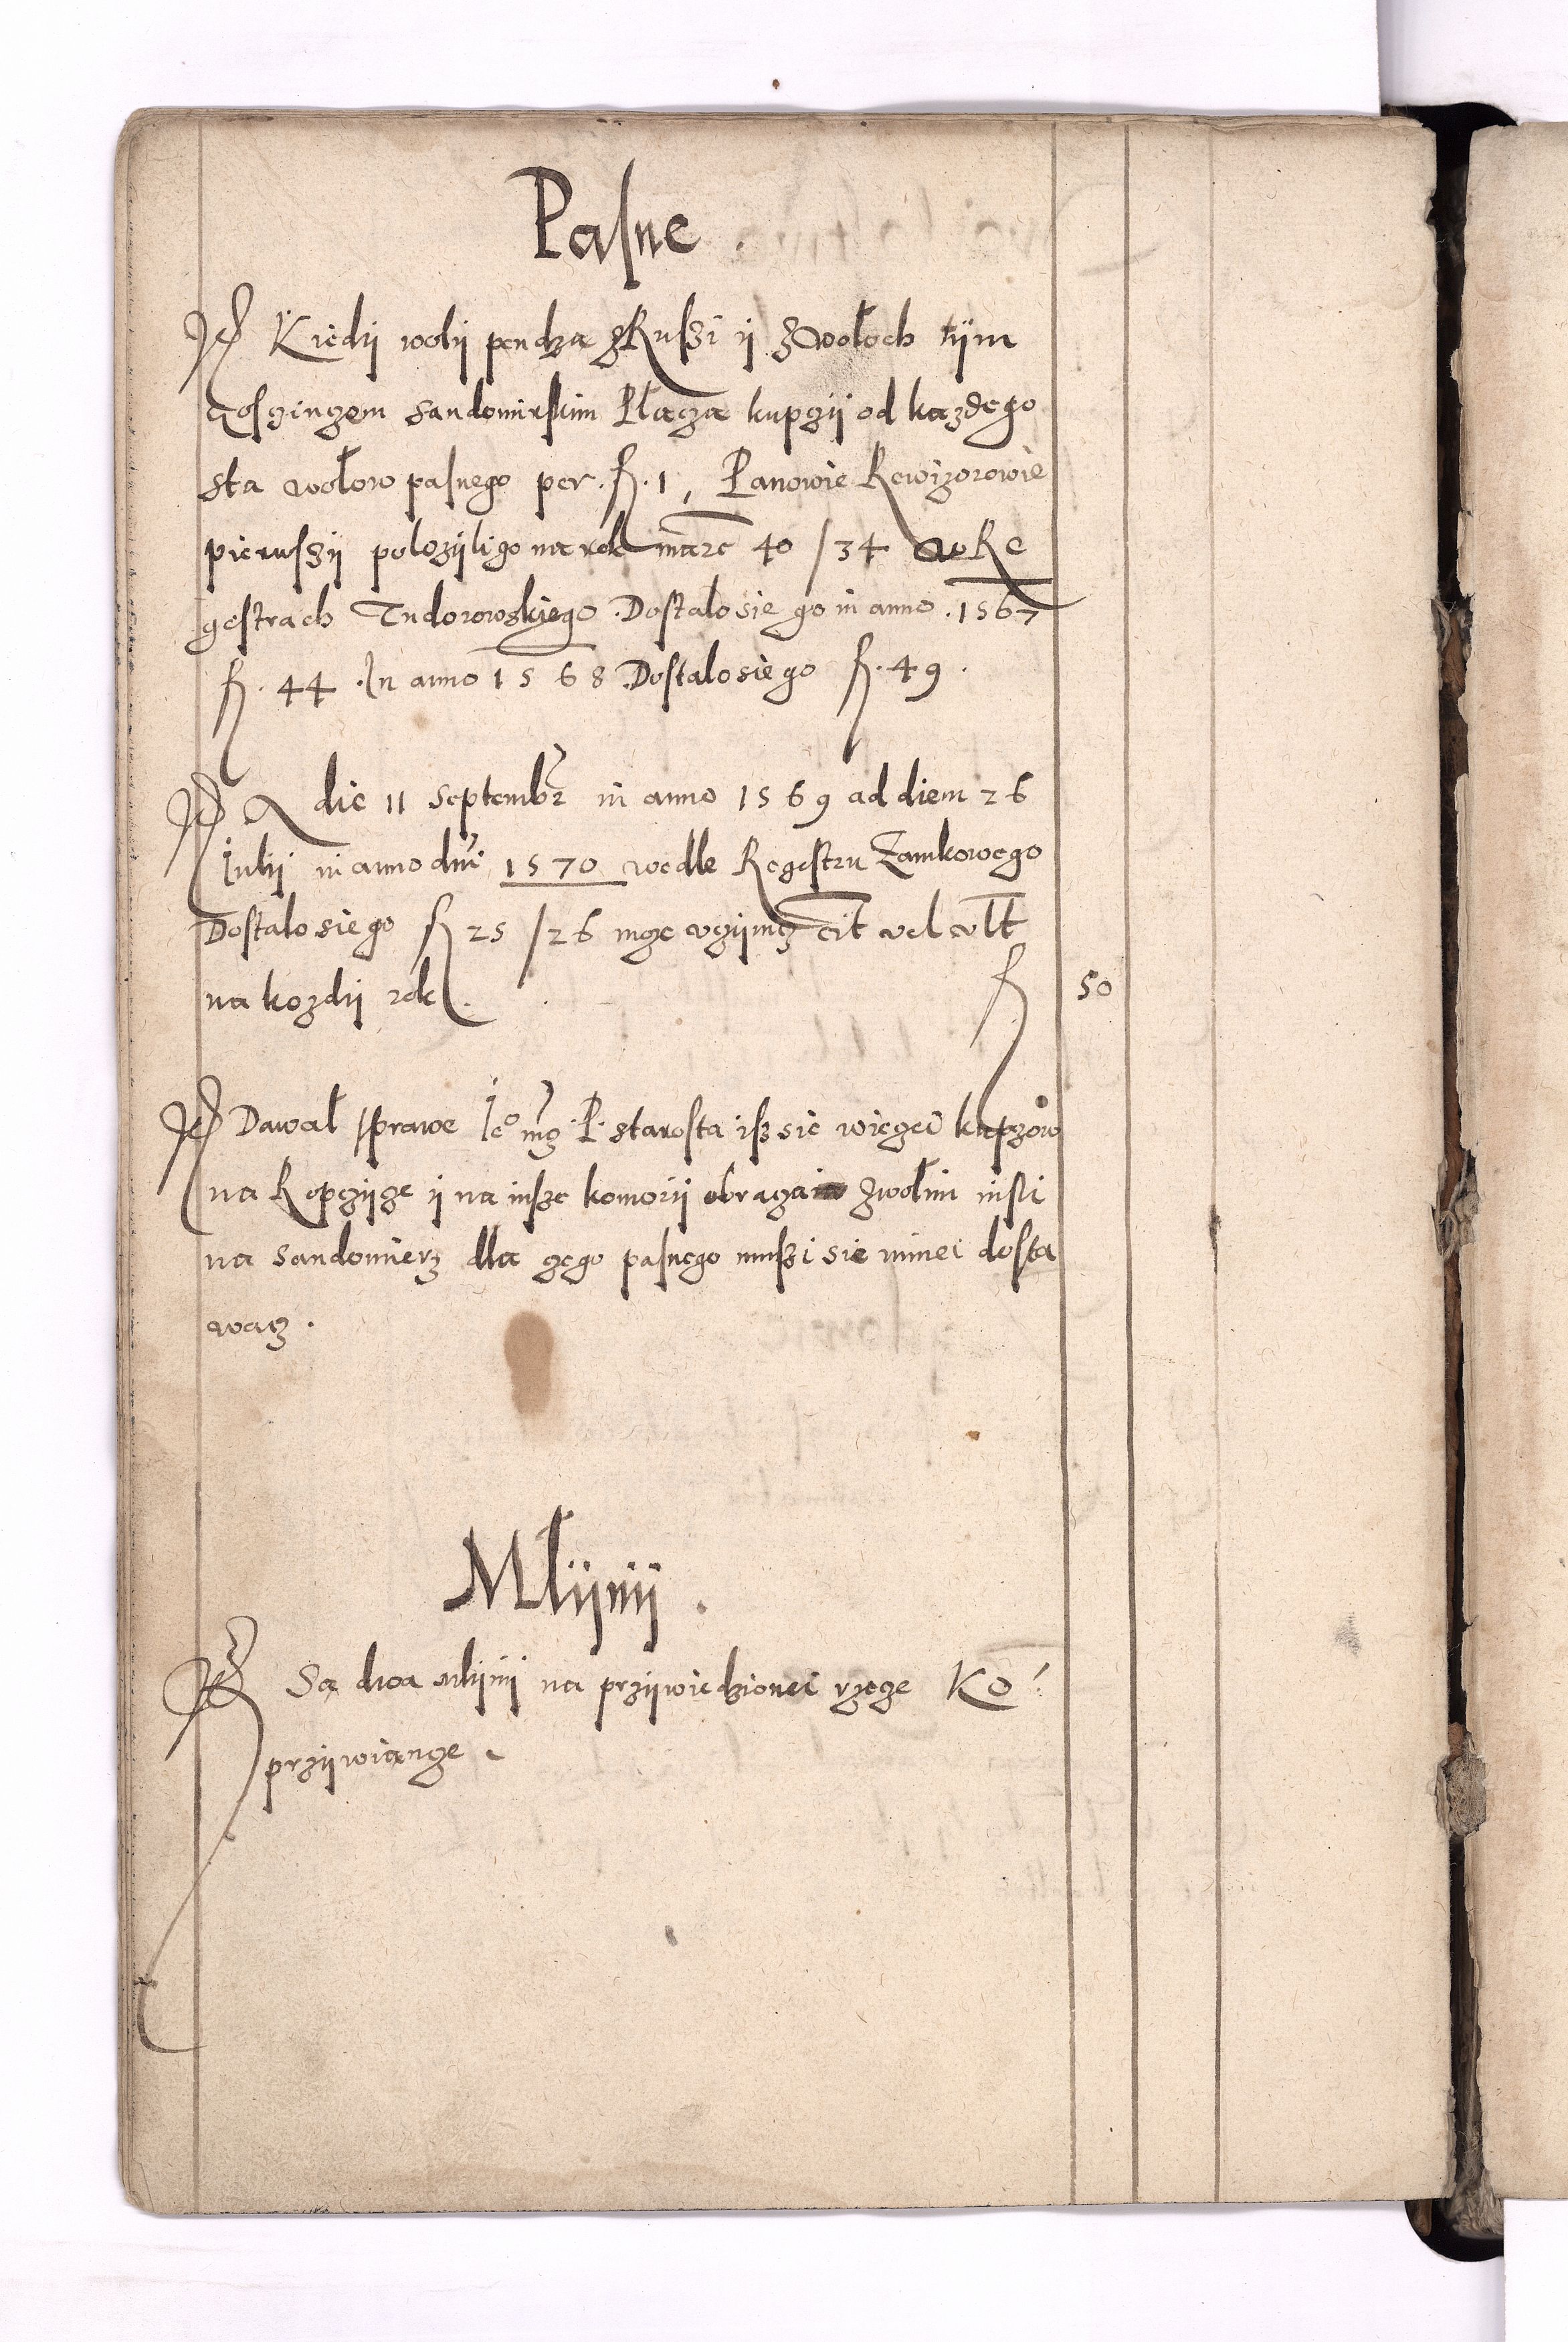 Pasne .
It Kiedÿ wolÿ pendza z Ruszi ÿ z Woloch tÿm
gosczinczem Sandomirskim Płacza kupczÿ od kazdego
sta wołow pasnego per . fl . 1 , Panowie Rewizorowie
pierwszÿ polozÿli go na rok marc 40 / 34 w Re
gestrach Tudorowskiego . Dostalo sie go in anno . 1567
fl . 44 . In anno 1568 Dostalo sie go fl . 49 .
It A die 11 Septembr in anno 1569 ad diem 26
Iulÿ in anno dni 1570 wedle Regestru Zamkowego
Dostalo sie go fl 25 / 26 cit vel vlt
na kozdÿ rok . fl 50
It Dawał sprawe Ie° mcz . P . starosta isz sie wieczei kupczow
na Ropczÿcze ÿ na insze komorÿ obraczaia z wołmi nisli
na Sandomierz dla czego pasnego muszi sie mniei dosta
wacz .
Młÿnÿ .
It Sa dwa mlÿnÿ na przÿwiedzionei rzecze Ko
przÿwiancze .